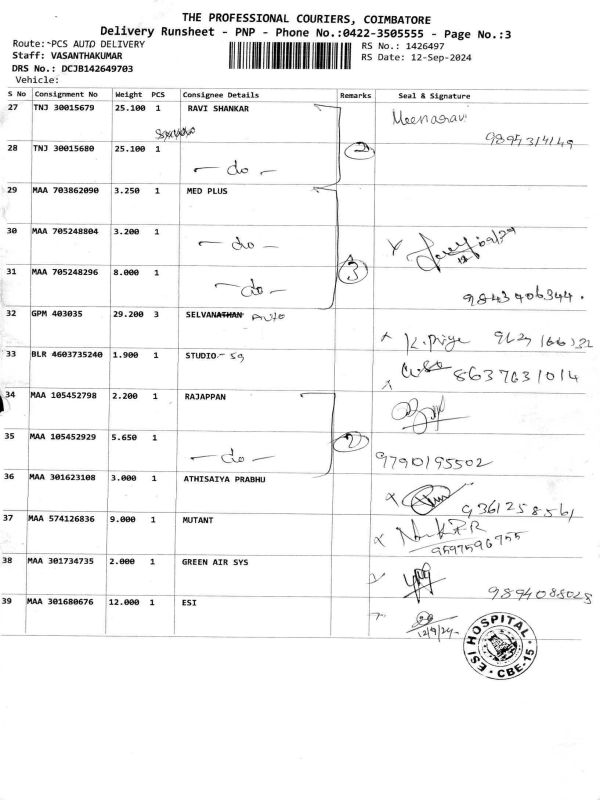 THE PROFESSIONAL COURIERS, COIMBATORE
Delivery Runsheet - PNP - Phone No.:0422-3505555 - Page No.:3
Route: PCS AUTO DELIVERY RS No.: 1426497
Staff: VASANTHAKUMAR RS Date: 12-Sep-2024
DRS No.: DCJB142649703
Vehicle:
S No Consignment No Weight PCS Consignee Details Remarks Seal & Signature
27 TNJ 30015679 25.100 1 RAVI SHANKAR Meenaravi
9894314149
28 TNJ 30015680 25.100 1 2
- do -
29 MAA 703862090 3.250 1 MED PLUS
30 MAA 705248804 3.200 1
- do -
31 MAA 705248296 8.000 1 3
- do - 9843406344.
32 GPM 403035 29.200 3 SELVANATHAN AUTO
x K.Priya
33 BLR 4603735240 1.900 1 STUDIO - 59
8637631014
34 MAA 105452798 2.200 1 RAJAPPAN
35 MAA 105452929 5.650 1 2
- do - 9790195502
36 MAA 301623108 3.000 1 ATHISAIYA PRABHU
9361258561
37 MAA 574126836 9.000 1 MUTANT
9597596755
38 MAA 301734735 2.000 1 GREEN AIR SYS
9894088025
39 MAA 301680676 12.000 1 ESI
12/9/24
ESI HOSPITAL
CBE-15